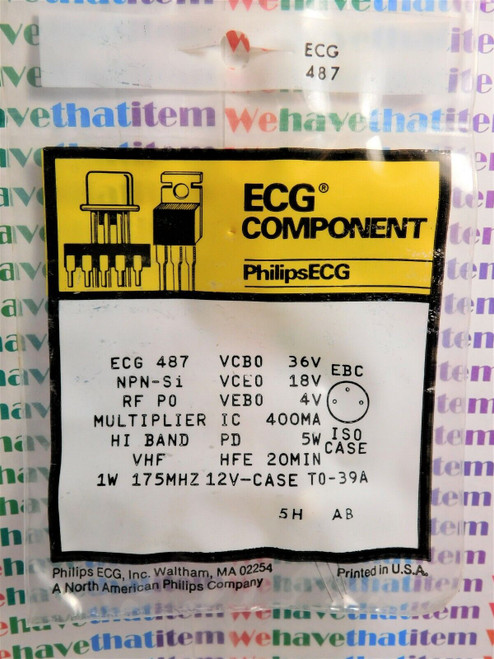 ECG
487
ECG®
COMPONENT
PhilipsECG
ECG 487 VCBO 36V
NPN-Si VCEO 18V EBC
RF PO VEBO 4V
MULTIPLIER IC 400MA
HI BAND PD 5W ISO
VHF HFE 20MIN CASE
1W 175MHZ 12V-CASE TO-39A
5H AB
Philips ECG, Inc. Waltham, MA 02254
A North American Philips Company
Printed in U.S.A.
Wehavethatitem